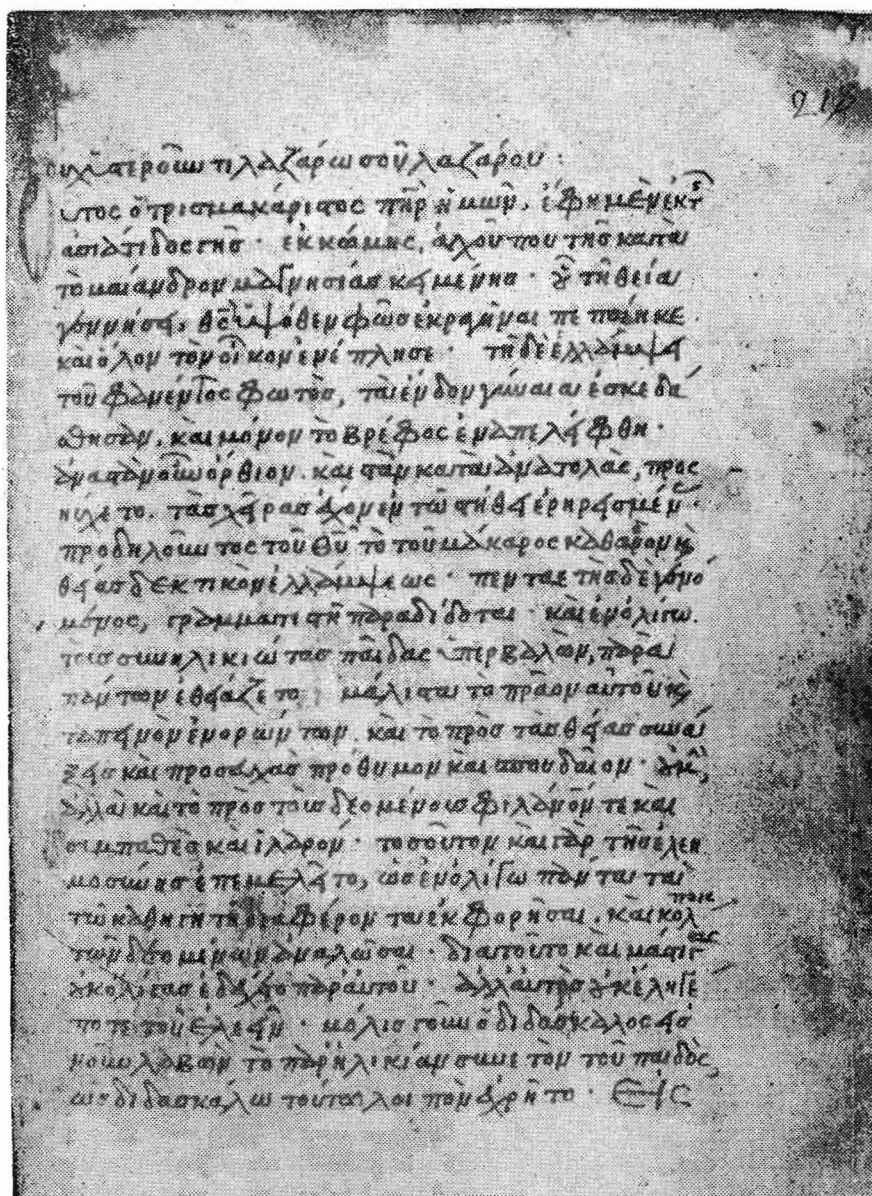 λαζάρω σοῦ λαζάρου :
υτος ὁ τρισμακάριστος πὴρ ἡμῶν, ἔφη μὲν ἐκ τ
ἀσιάτιδος γῆς · ἐκ κώμης, ἀγχοῦ που τῆς κατὰ
τὸ μαίανδρον μαγνησίας κειμένης · οὗ τῆ θεία
γεννήσει, θς ὑψόθεν φῶς ἐκραγῆναι πεποίηκε.
καὶ ὅλον τὸν οἶκον ἐνέπλησε · τῆ δὲ ἐλλάμψει
τοῦ φανέντος φωτὸς, τὰ ἔνδον γύναια ἐσκεδά
σθησαν, καὶ μόνον τὸ βρέφος ἐναπελείφθη ·
ἀναστὰν οὖν ὄρθιον. καὶ στὰν κατὰ ἀνατολὰς, προς
ηύχετο. τὰς χεῖρας ἔχον ἐν τῶ στήθει ἐρηρεισμέν ·
προδηλοῦντος τοῦ θῦ τὸ τοῦ μάκαρος καθαρὸν κ
θείας δεκτικὸν ἐλλάμψεως · πενταέτης δὲ γενό
μενος, γραμματιστῆ παραδίδοται · καὶ ἐν ὀλίγω.
τοὺς συνηλικιώτας παῖδας ὑπερβαλὼν, παρὰ
πάντων ἐθειάζετο μάλιστα τὸ πρᾶον αὐτοῦ κ
ταπεινὸν ἐνορώντων. καὶ τὸ πρὸς τὰς θείας συνά
ξεις καὶ προσευχὰς πρόθυμον καὶ σπουδαῖον ·
ἀλλὰ καὶ τὸ πρὸς τοὺς δεομένους φιλάνον τε καὶ
συμπαθὲς καὶ ἱλαρόν · τοσοῦτον καὶ γὰρ τῆς ἐλεη
μοσύνης ἐπεμελεῖτο, ὡς ἐν ὀλίγω πάντα τὰ
τῶ καθηγητῆ διαφέροντα ἐκφορῆσαι. καὶ κόλποις
τῶν δεομένων ἀναλῶσαι · διατοῦτο καὶ μάστιγας
ἐδέχετο παρ αὐτοῦ · ἀλλ αὐτὸς οὐκ ἔληγέ
ποτε τοῦ ἐλεεῖν · μόλις γοῦν ὁ διδάσκαλος εἰς
νοῦν λαβὼν τὸ παρ ἡλικίαν συνετὸν τοῦ παιδὸς,
ὡς διδασκάλω τούτω λοιπὸν ἐχρῆτο · Εἰς